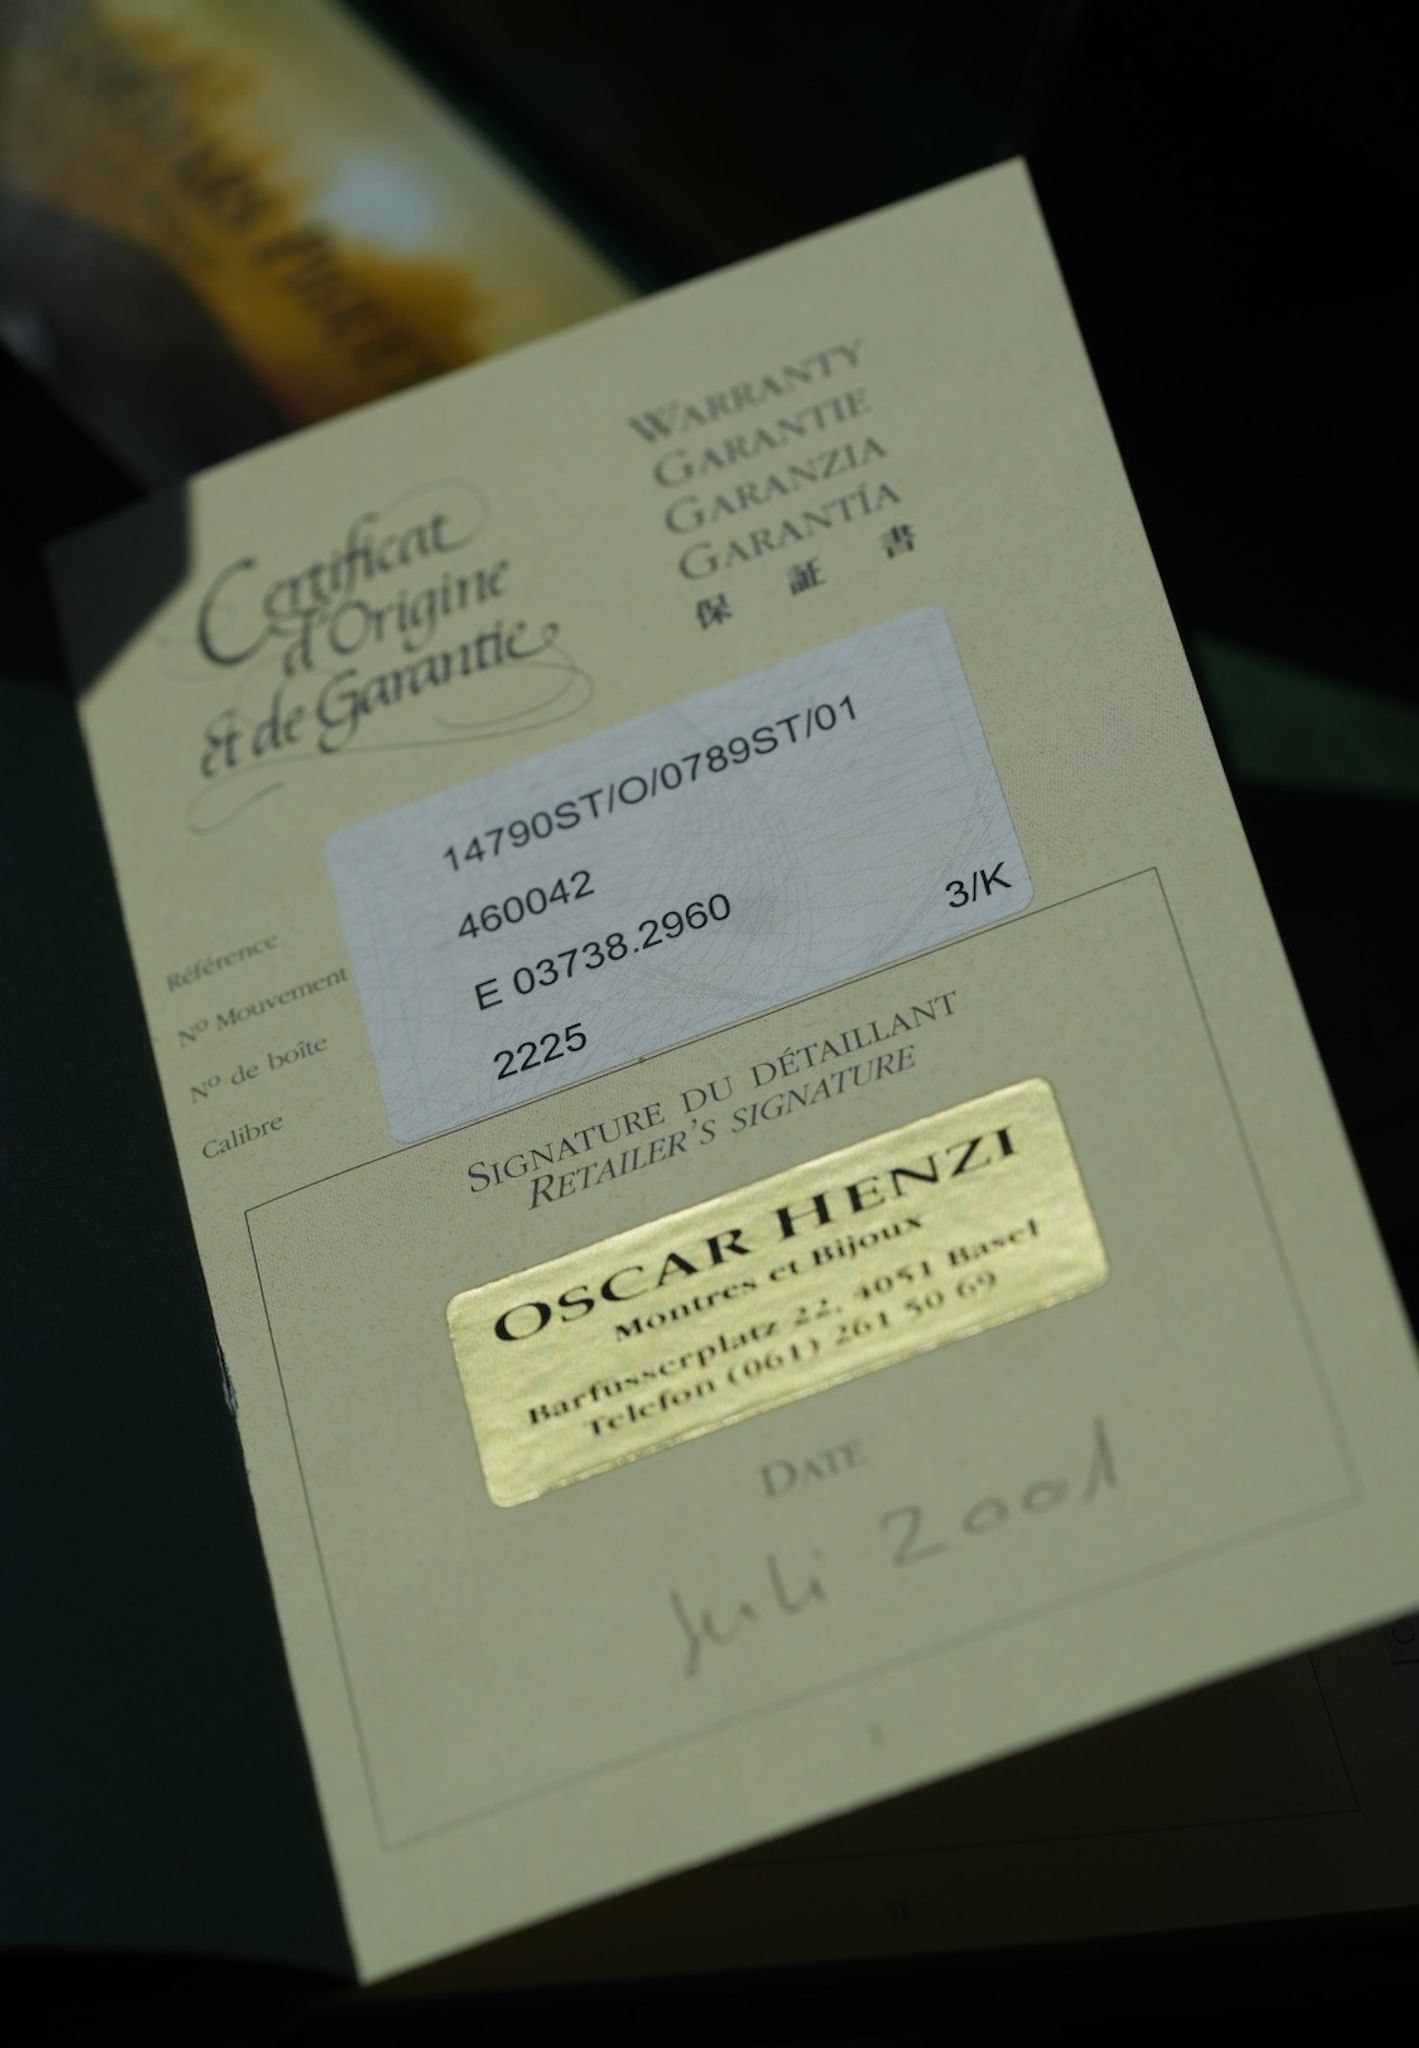 AUDEMARS PIGUET
Certificat
d'Origine
et de Garantie
WARRANTY
GARANTIE
GARANZIA
GARANTÍA
保 証 書
Référence 14790ST/O/0789ST/01
Nº Mouvement 460042
Nº de boîte E 03738.2960 3/K
Calibre 2225
SIGNATURE DU DÉTAILLANT
RETAILER'S SIGNATURE
OSCAR HENZI
Montres et Bijoux
Barfüsserplatz 22, 4051 Basel
Telefon (061) 261 50 69
DATE
Juli 2001